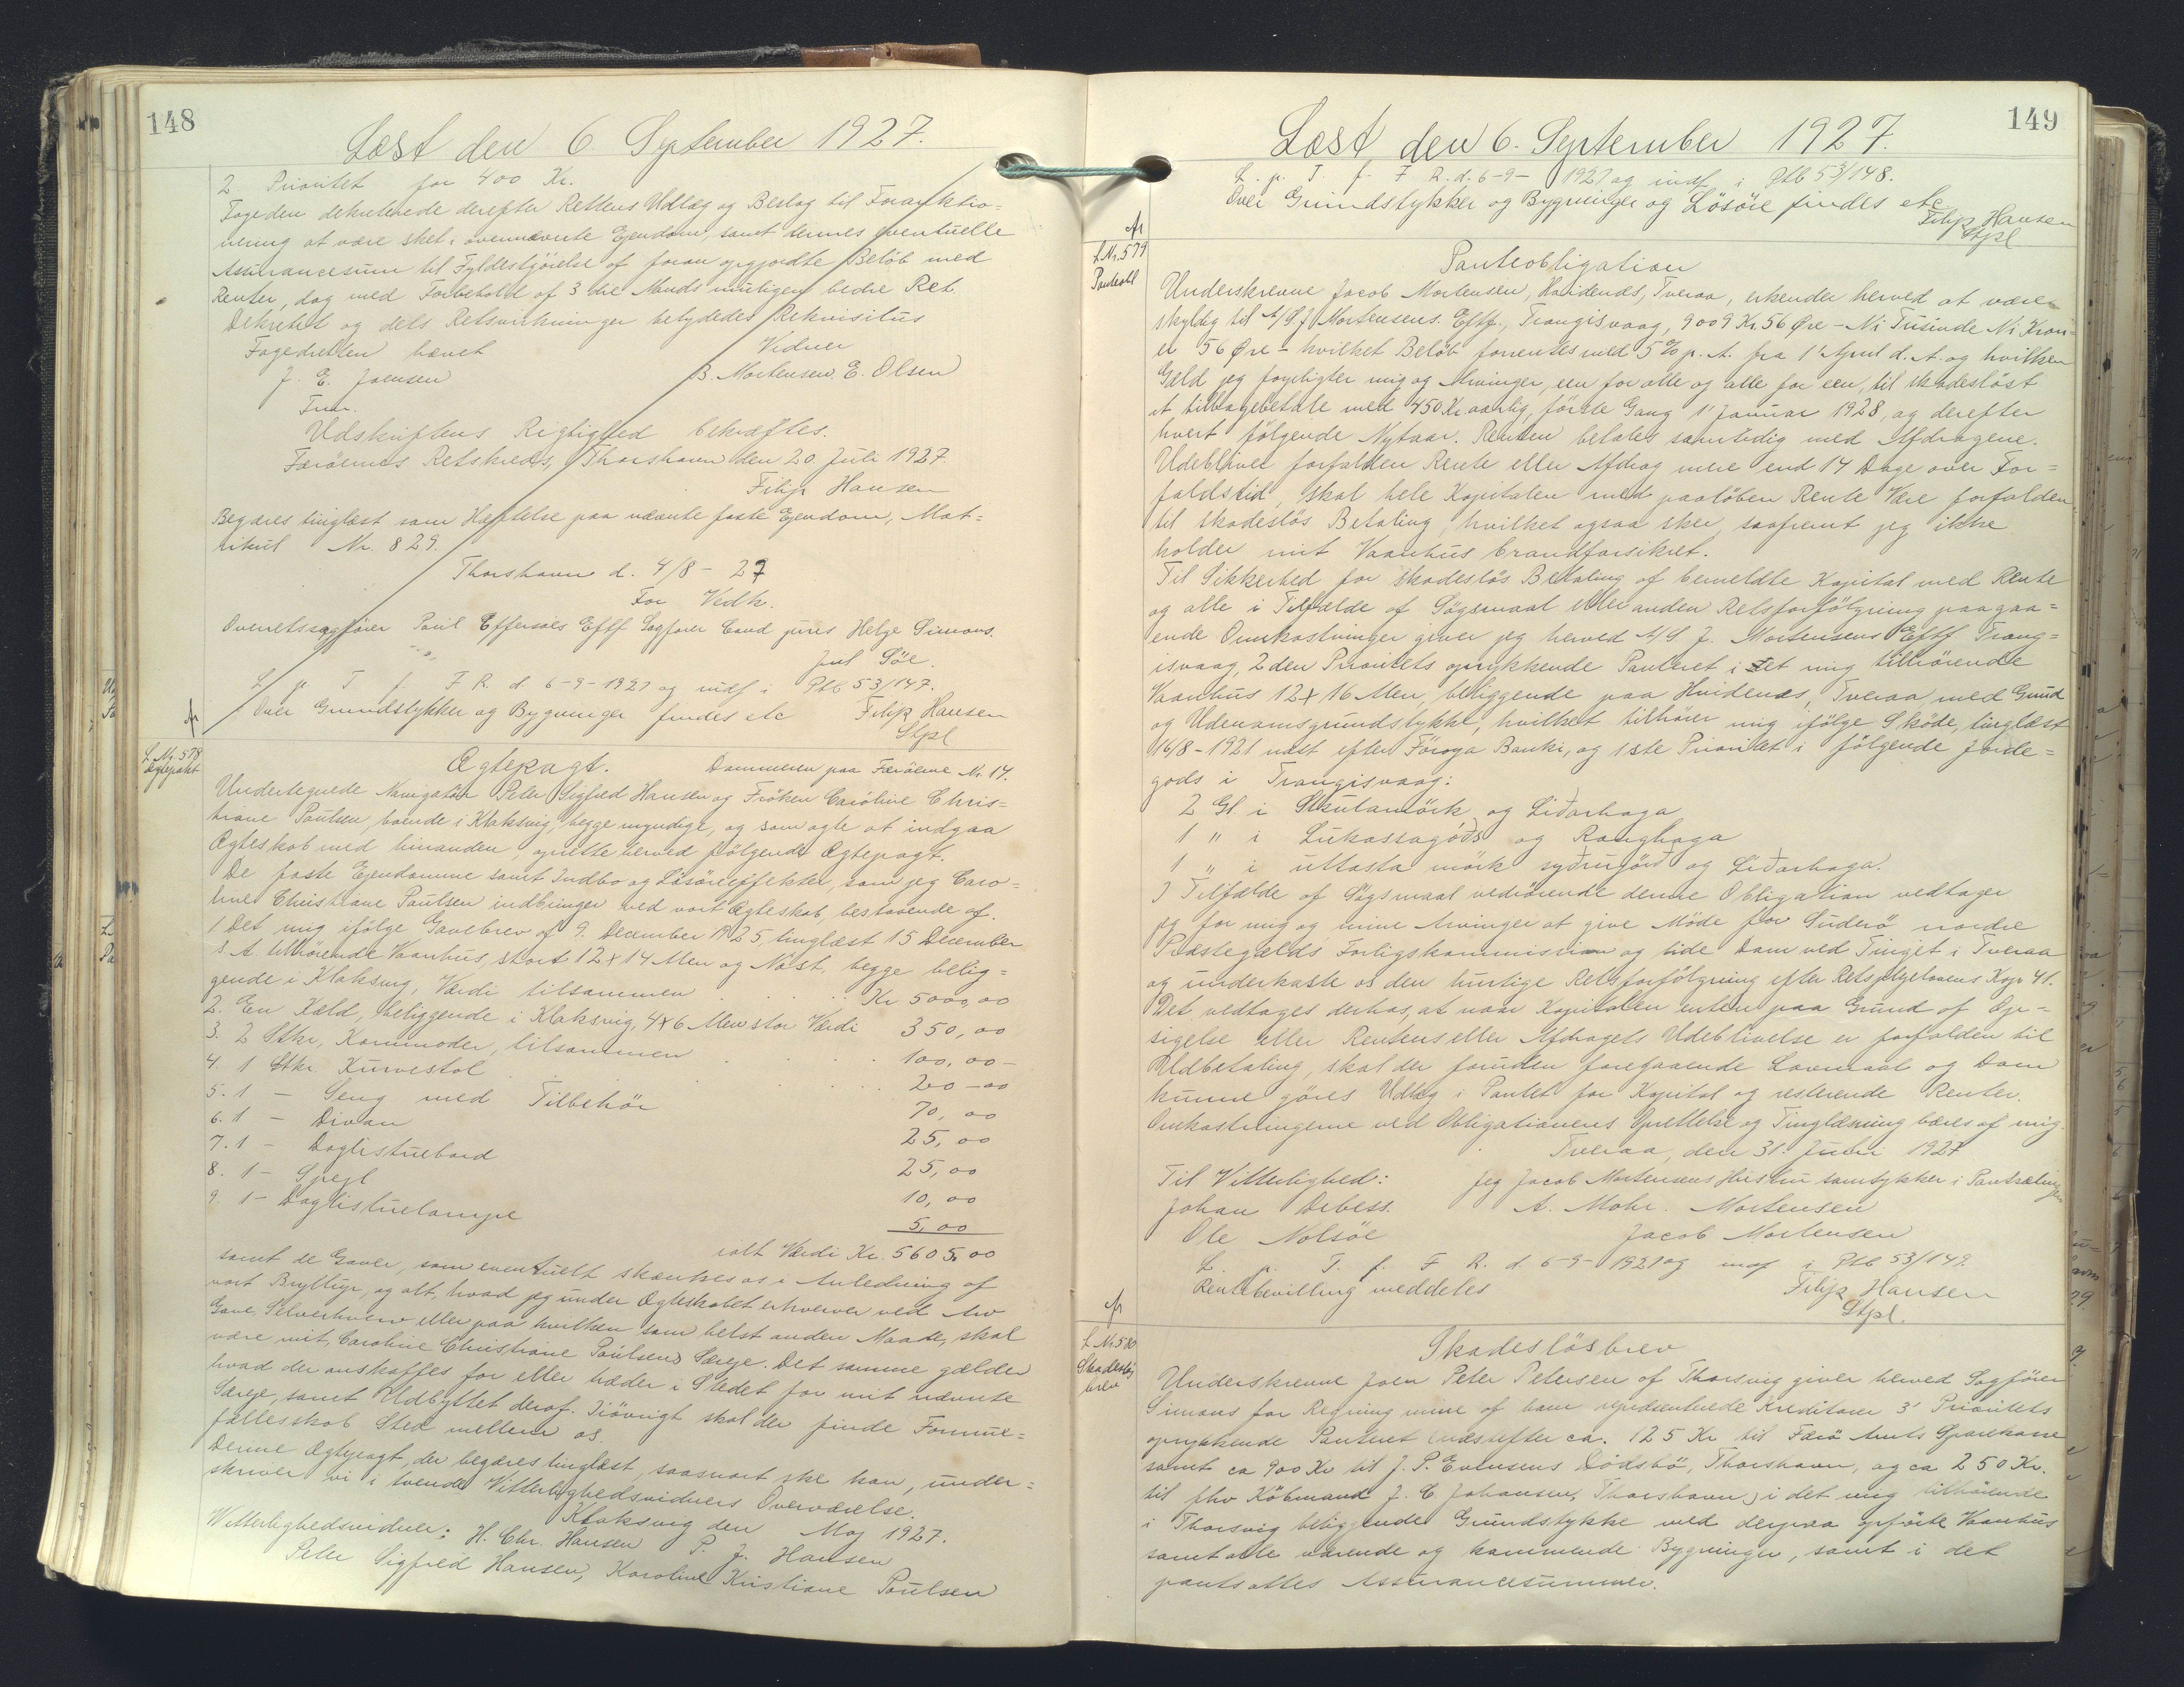 148
Læst den 6 September 1927.
2. Prioritet for 400 Kr.
Fogeden dekreterede derefter Rettens Udlæg og Beslag til Forauktio=
nering at være sket i ovennævnte Ejendom, samt dennes eventuelle
Assurancesum til Fyldestgjörelse af foran opgjordte Belöb med
Renter, dog med Forbehold af 3 die Mands muligen bedre Ret.
Dekretet og dets Retsvirkninger betydedes Rekvisitus
Fogedretten hævet Vidner
J. E. Joensen B. Mortensen. E. Olsen
Fm.
Udskriftens Rigtighed bekræftes.
Færöernes Retskreds, Thorshavn den 20. Juli 1927.
Filip Hansen
Begæres tinglæst som Hæftelse paa nævnte faste Ejendom, Mat=
rikul Nr. 829.
Thorshavn d. 4/8 - 27
For Vedk.
Overretssagfører Poul Effersøes Eftf Sagfører Cand juris Helge Simons.
Jul Söe.
L. p. T. f. F. R. d. 6-9-1927 og indf i Ptb 53/147.
Over Grundstykker og Bygninger findes etc Filip Hansen
Stpl
Ar
L.Nr. 578
Ægtepakt
Ægtepagt. Dommeren paa Færöerne Nr. 14.
Undertegnede Navigatör Peter Sigfred Hansen og Fröken Caroline Chris=
tiane Poulsen, boende i Klaksvig, begge myndige, og som agte at indgaa
Ægteskab med hinanden, oprette herved fölgende Ægtepagt.
De faste Ejendomme samt Indbo og Lösöreeffekter, som jeg Caro=
line Christiane Poulsen indbringer ved vort Ægteskab, bestaaende af.
1 Det mig ifölge Gavebrev af 9. December 1925, tinglæst 15 December
s. A. tilhörende Vaanhus, stort 12 x 14 Alen og Nöst, begge belig=
gende i Klaksvig, Værdi tilsammen Kr 5000,00
2. En Kæld, beliggende i Klaksvig, 4x6 Alen stor Værdi 350,00
3. 2 Stkr, Kommoder, tilsammen 100,00-
4. 1 Stkr Kurvestol 20-00
5. 1 - Seng med Tilbehör 70,00
6. 1 - Divan 25,00
7. 1 - Daglistuebord 25,00
8. 1 - Spejl 10,00
9. 1 - Daglistuelampe 5,00
ialt Værdi Kr. 5605,00
samt de Gaver, som eventuelt skænkes os i Anledning af
vort Bryllup, og alt, hvad jeg under Ægteskabet erhverver ved Arv
Gave, Selverhverv eller paa hvilken som helst anden Maade, skal
være mit, Caroline Christiane Poulsens Særeje. Det samme gælder
hvad der anskaffes for eller træder i Stedet for mit nævnte
Særeje, samt Udbyttet deraf. Iövrigt skal der finde Formue=
fællesskab Sted mellem os.
Denne Ægtepagt, der begæres tinglæst, saasnart ske kan, under=
skriver vi i tvende Vitterlighedsvidners Overværelse.
Klaksvig den Maj 1927.
Vitterlighedsvidner: H. Chr. Hansen P. J. Hansen
Peter Sigfred Hansen, Karoline Kristiane Poulsen
149
Læst, den 6. September 1927.
L. p. T. f. F. R. d. 6-9-1927 og indf i Ptb 53/148.
Over Grundstykker og Bygninger og Lösöre findes etc
Filip Hansen
Stpl
Ar
L.Nr. 579
Panteobl
Panteobligation
Underskrevne Jacob Mortensen, Hvidenæs, Tveraa, erkender herved at være
skyldig til A/S. J. Mortensens. Eftf., Trangisvaag, 9009 Kr. 56 Øre - Ni Tusinde Ni Kron=
er 56 Øre - hvilket Belöb forrentes med 5% p. A. fra 1' April d. A. og hvilken
Gæld jeg forpligter mig og Arvinger, een for alle og alle for een, til skadeslöst
at tilbagebetale med 450 Kr aarlig, förste Gang 1' Januar 1928, og derefter
hvert fölgende Nytaar. Renten betales samtidig med Afdragene.
Udebliver forfalden Rente eller Afdrag mere end 14 Dage over For=
faldstid, skal hele Kapitalen med paalöben Rente være forfalden
til skadeslös Betaling, hvilket ogsaa sker, saafremt jeg ikke
holder mit Vaanhus brandforsikret.
Til Sikkerhed for skadeslös Betaling af bemeldte Kapital med Rente
og alle i Tilfælde af Sögsmaal eller anden Retsforfölgning paagaa=
ende Omkostninger giver jeg herved A/S. J. Mortensens Eftf. Trang=
isvaag, 2den Prioritets oprykkende Panteret i det mig tilhörende
Vaanhus 12x16 Alen, beliggende paa Hvidenæs, Tveraa, med Grund
og Udenomsgrundstykke, hvilket tilhörer mig ifölge Sköde, tinglæst
16/8-1921 næst efter Föroya Banki, og 1ste Prioritet i fölgende Jorde=
gods i Trangisvaag:
2 Gl. i Skulamörk og Liðarhaga
1 " i Lukassagóðs og Ranghaga
1 " i uttasta mörk syðrugörð og Liðarhaga.
I Tilfælde af Sögsmaal vedrörende denne Obligation vedtager
jeg for mig og mine Arvinger at give Möde for Suderö nordre
Præstegælds Forligskommission og lide Dom ved Tinget i Tveraa
og underkaste os den hurtige Retsforfölgning efter Retsplejelovens Kap. 41.
Det vedtages derhos, at naar Kapitalen enten paa Grund af Op=
sigelse eller Rentens eller Afdragets Udeblivelse er forfalden til
Udbetaling, skal der foruden foregaaende Lovmaal og Dom
kunne göres Udlæg i Pantet for Kapital og resterende Renter.
Omkostningerne ved Obligationens Oprettelse og Tinglæsning bæres af mig.
Tveraa, den 31. Juli 1927
Til Vitterlighed: Jeg Jacob Mortensens Hustru samtykker i Pantsætningen
Johan Debess. A. Mohr. Mortensen
Ole Nolsöe Jacob Mortensen
L. p. T. f. F. R. d. 6-9-1927 og indf i Ptb 53/149.
Rentebevilling meddeles Filip Hansen
Stpl.
Ar
L.Nr. 580
Skadeslös
brev
Skadeslösbrev
Underskrevne Joen Peter Petersen af Thorsvig giver herved Sagförer
Simons for Regning mine af ham repræsenterede Kreditorer 3' Prioritets
oprykkende Panteret (næst efter ca. 125 Kr til Færö Amts Sparekasse
samt ca 900 Kr til J. P. Evensens Dödsbö, Thorshavn, og ca 250 Kr.
til fhv Köbmand J. C. Johansen, Thorshavn) i det mig tilhörende
i Thorsvig beliggende Grundstykke med derpaa opförte Vaanhus
samt alle værende og kommende Bygninger, samt i det
pantsattes Assurancesummer.